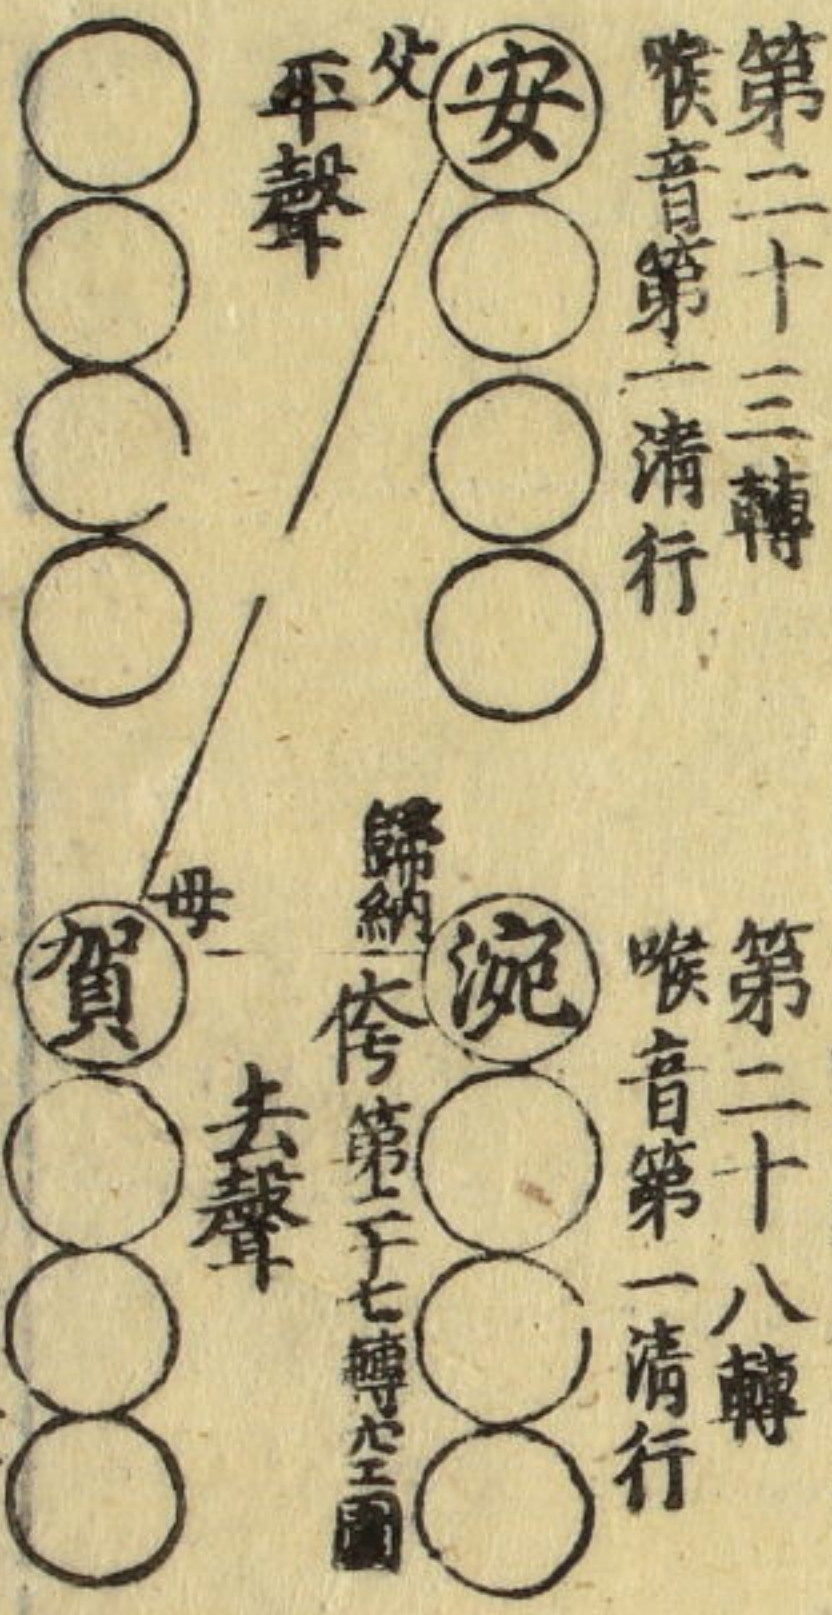 第二十三轉
喉音第一清行
安
父
平聲
第二十八轉
喉音第一清行
涴
歸納
侉第二十七轉空圈
去聲
母
賀